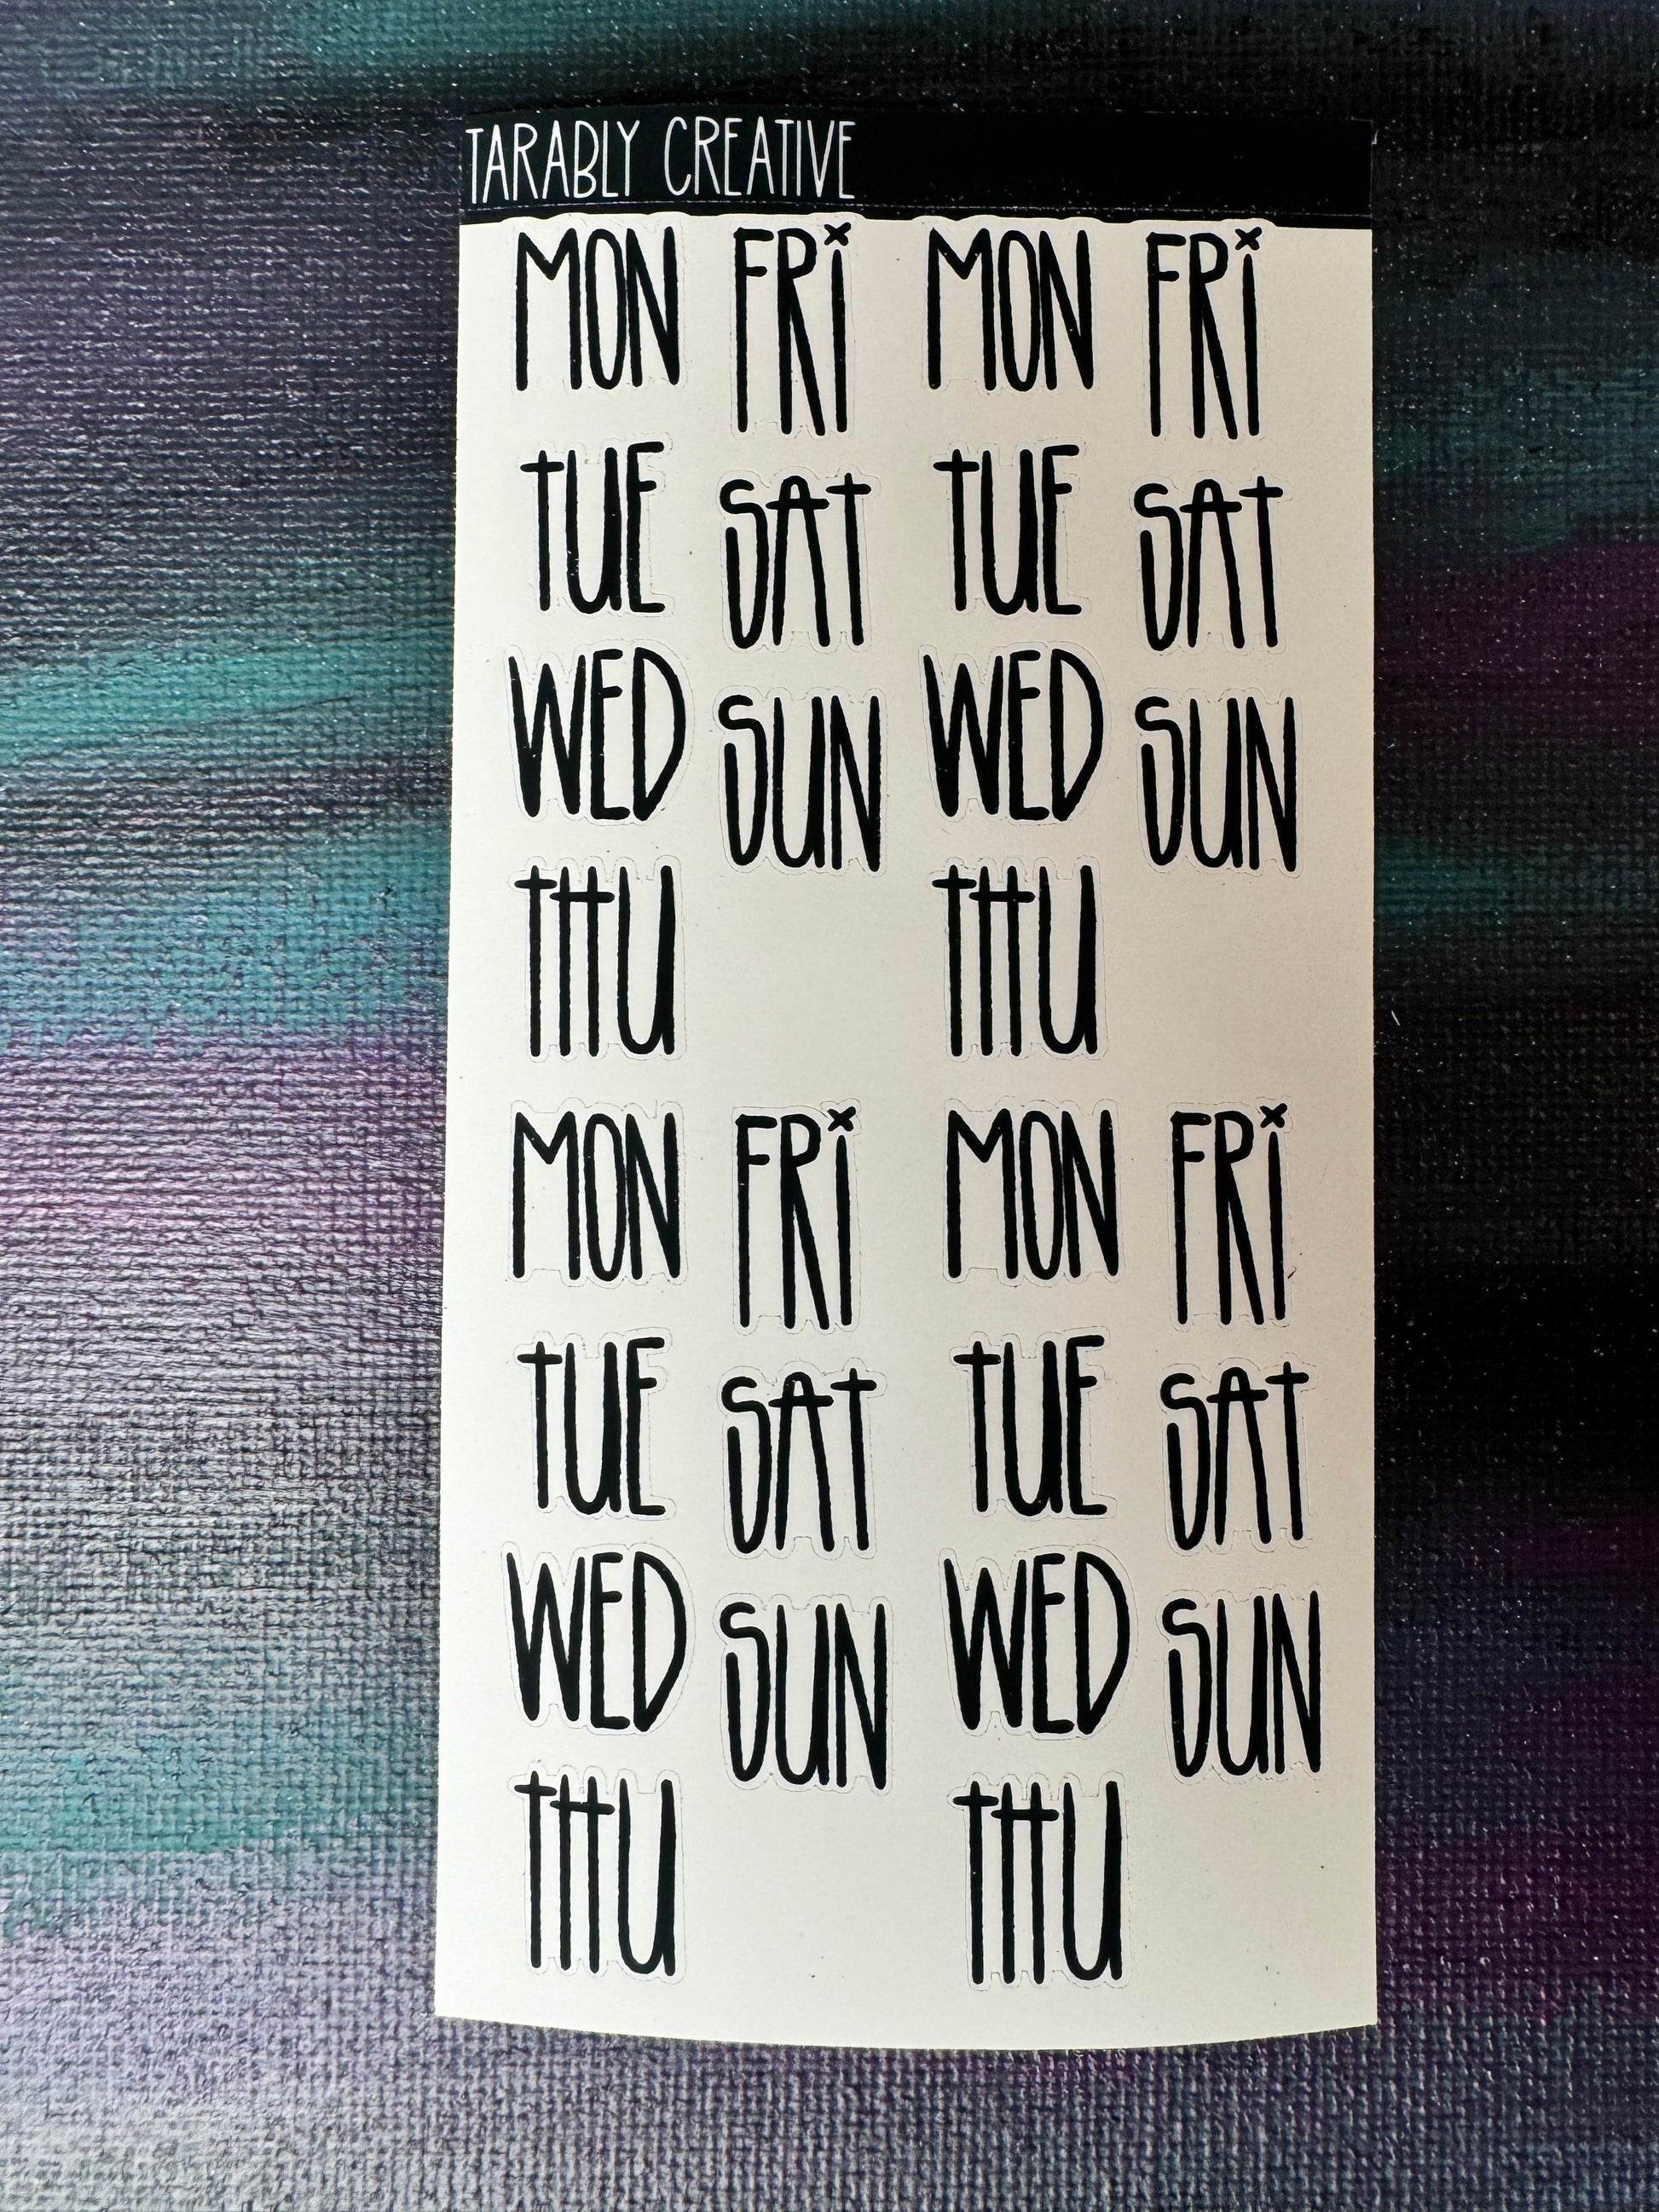 TARABLY CREATIVE
MON FRi MON FRi
TUE SAT TUE SAT
WED SUN WED SUN
THU THU
MON FRi MON FRi
TUE SAT TUE SAT
WED SUN WED SUN
THU THU